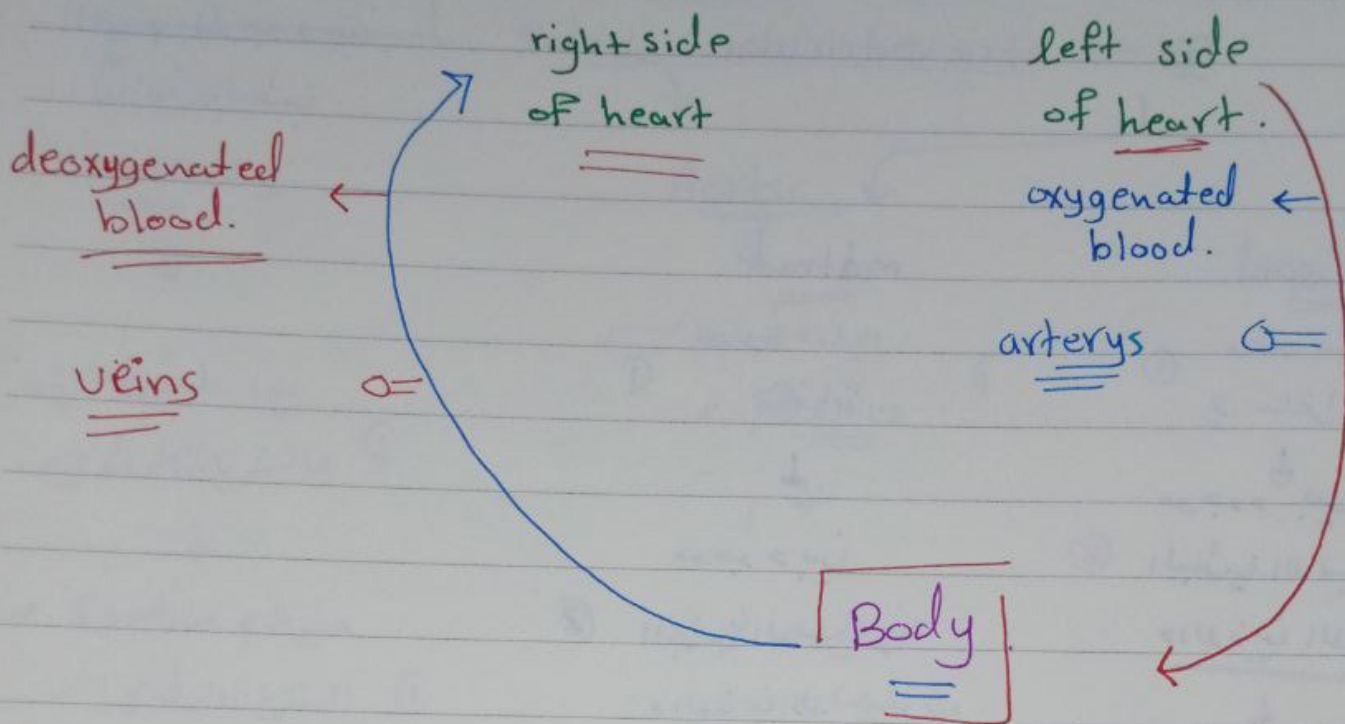 right side
of heart
left side
of heart.
deoxygenated
blood.
oxygenated
blood.
veins
arterys
Body